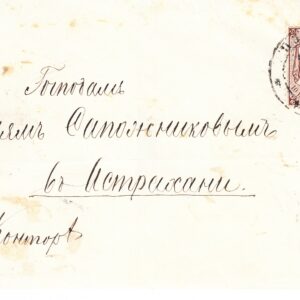 Господамъ
ьямъ Сапожниковымъ
въ Астрахани.
Контора